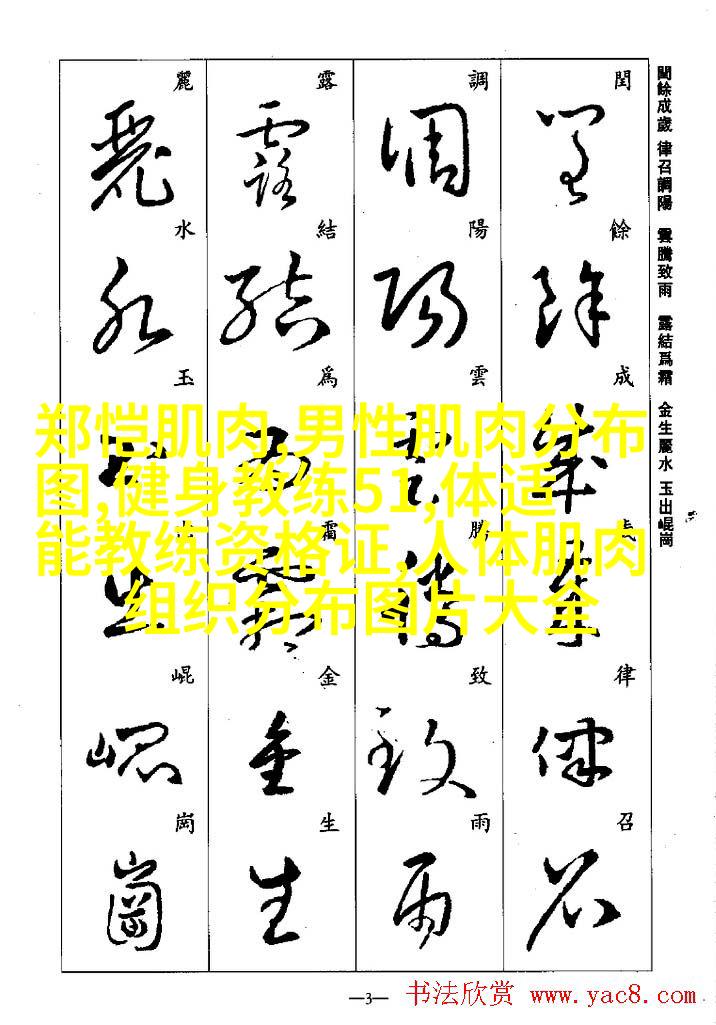 閏餘成歲 律召調陽 雲騰致雨 露結爲霜 金生麗水 玉出崐崗
閏
餘
成
律
召
調
陽
雲
騰
致
雨
露
結
爲
霜
金
生
麗
水
玉
崐
崗
郑恺肌肉,男性肌肉分布
图,健身教练51,体适
能教练资格证,人体肌肉
组织分布图片大全
—3—
书法欣赏 www.yac8.com